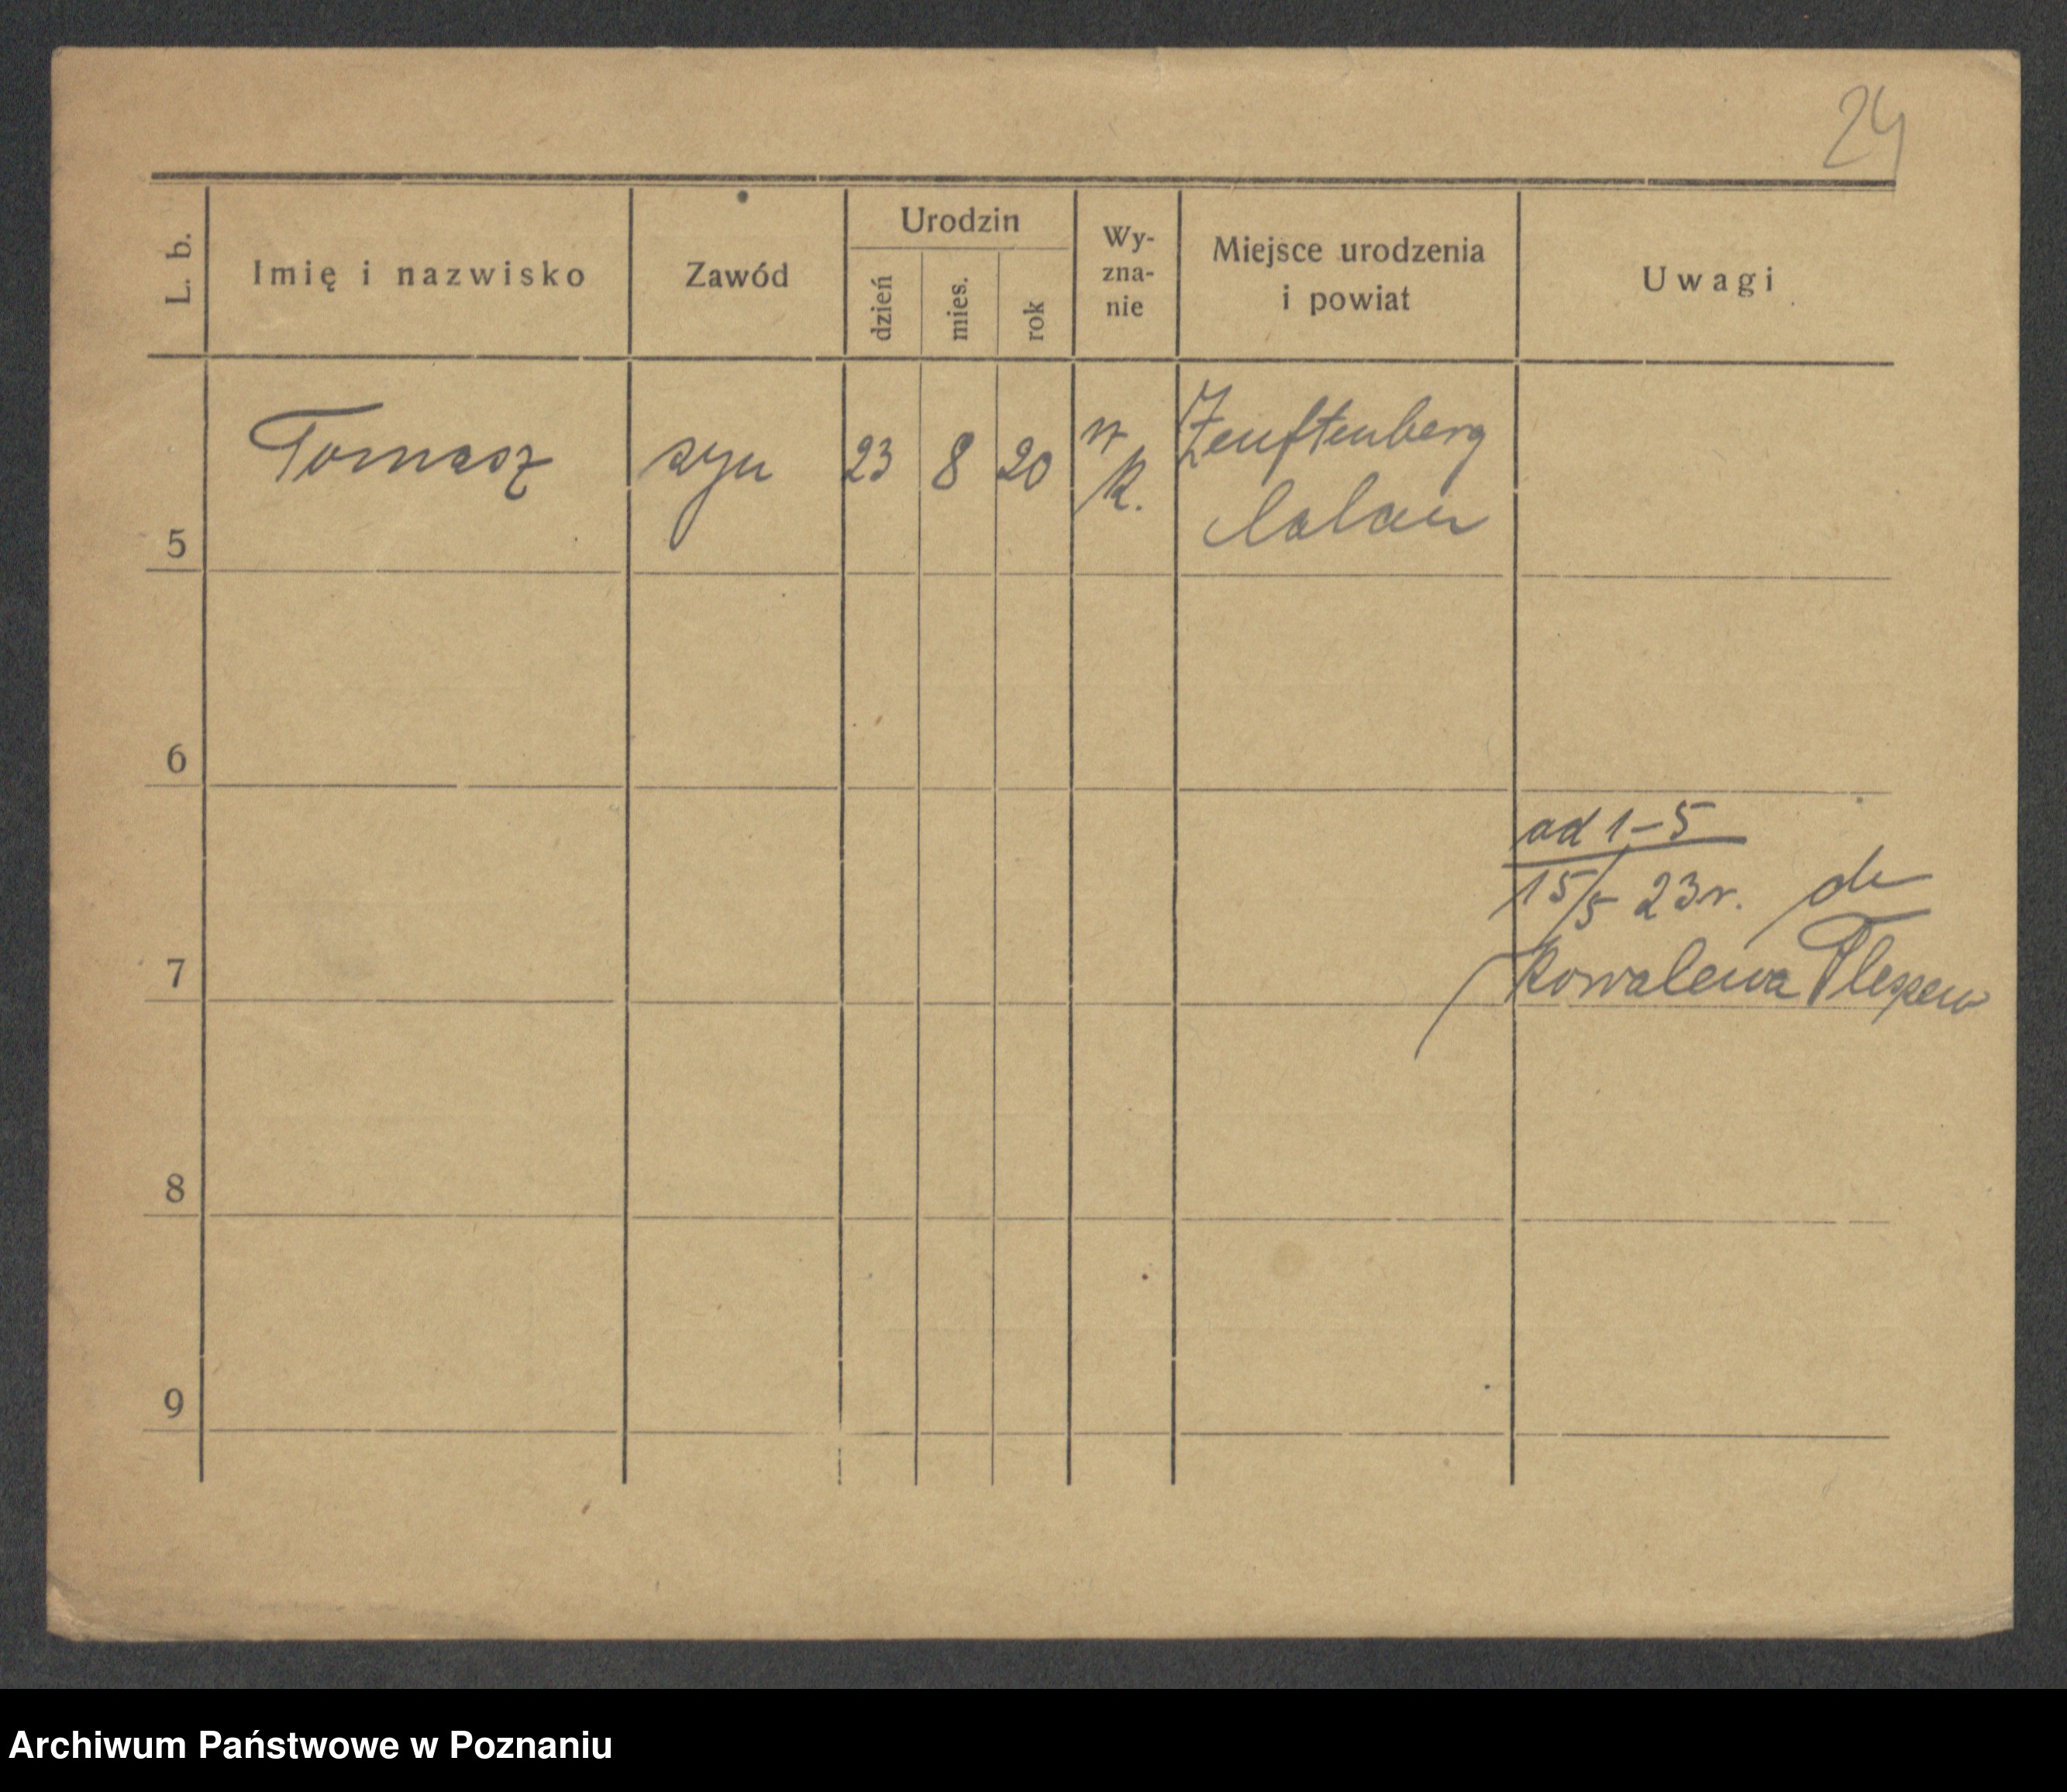 24
L. b.
Imię i nazwisko
Zawód
Urodzin
dzień
mies.
rok
Wy-
zna-
nie
Miejsce urodzenia
i powiat
Uwagi
5
Tomasz
syn
23
8
20
r.
k.
Zenftenberg
Calau
6
ad 1-5
15/5 23r. do
7
Kowalewa Pleszew
8
9
Archiwum Państwowe w Poznaniu